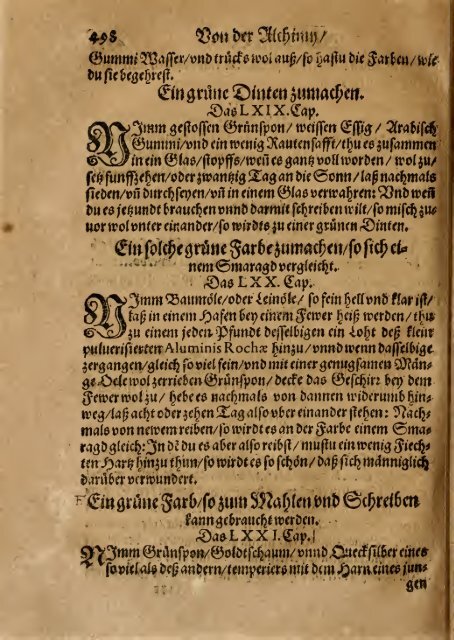 498 Von der Alchimy/
Gummi Wasser/vnd trücks wol auß/so hastu die Farben/wie
du sie begehrest.
Ein grüne Dinten zumachen.
Das LXIX. Cap.
NImm gestossen Grünspon/weissen Essig/Arabisch
Gummi/vnd ein wenig Rautensafft/thu es zusammen
in ein Glas/stopffs/weñ es gantz voll worden/wol zu/
setz funffzehen/oder zwantzig Tag an die Sonn/laß nachmals
sieden/vñ durchseyen/vñ in einem Glas verwahren: Vnd weñ
du es jetzundt brauchen vnnd darmit schreiben wilt/so misch zu-
uor wol vnter einander/so wirdts zu einer grünen Dinten.
Ein solche grüne Farbe zumachen/so sich ei-
nem Smaragd vergleicht.
Das LXX. Cap.
NImm Baumöle/oder Leinöle/so fein hell vnd klar ist/
laß in einem Hafen bey einem Fewer heiß werden/thu
zu einem jeden Pfundt desselbigen ein Loht deß klein
puluerisierten Aluminis Rochæ hinzu/vnnd wenn dasselbige
zergangen/gleich so viel fein/vnd mit einer genugsamen Män-
ge Oele wol zerrieben Grünspon/decke das Geschirr bey dem
Fewer wol zu/hebe es nachmals von dannen widerumb hin-
weg/laß acht oder zehen Tag also vber einander stehen: Nach-
mals von newem reiben/so wirdt es an der Farbe einem Sma-
ragd gleich: In dē du es aber also reibst/mustu ein wenig Fiech-
ten Hartz hinzu thun/so wirdt es so schön/daß sich männiglich
darüber verwundert.
Ein grüne Farb/so zum Mahlen vnd Schreiben
kann gebraucht werden.
Das LXXI. Cap.
NImm Grünspon/Goldtschaum/vnnd Quecksilber eines
so viel als deß andern/temperiers mit dem Harn eines jun-
gen